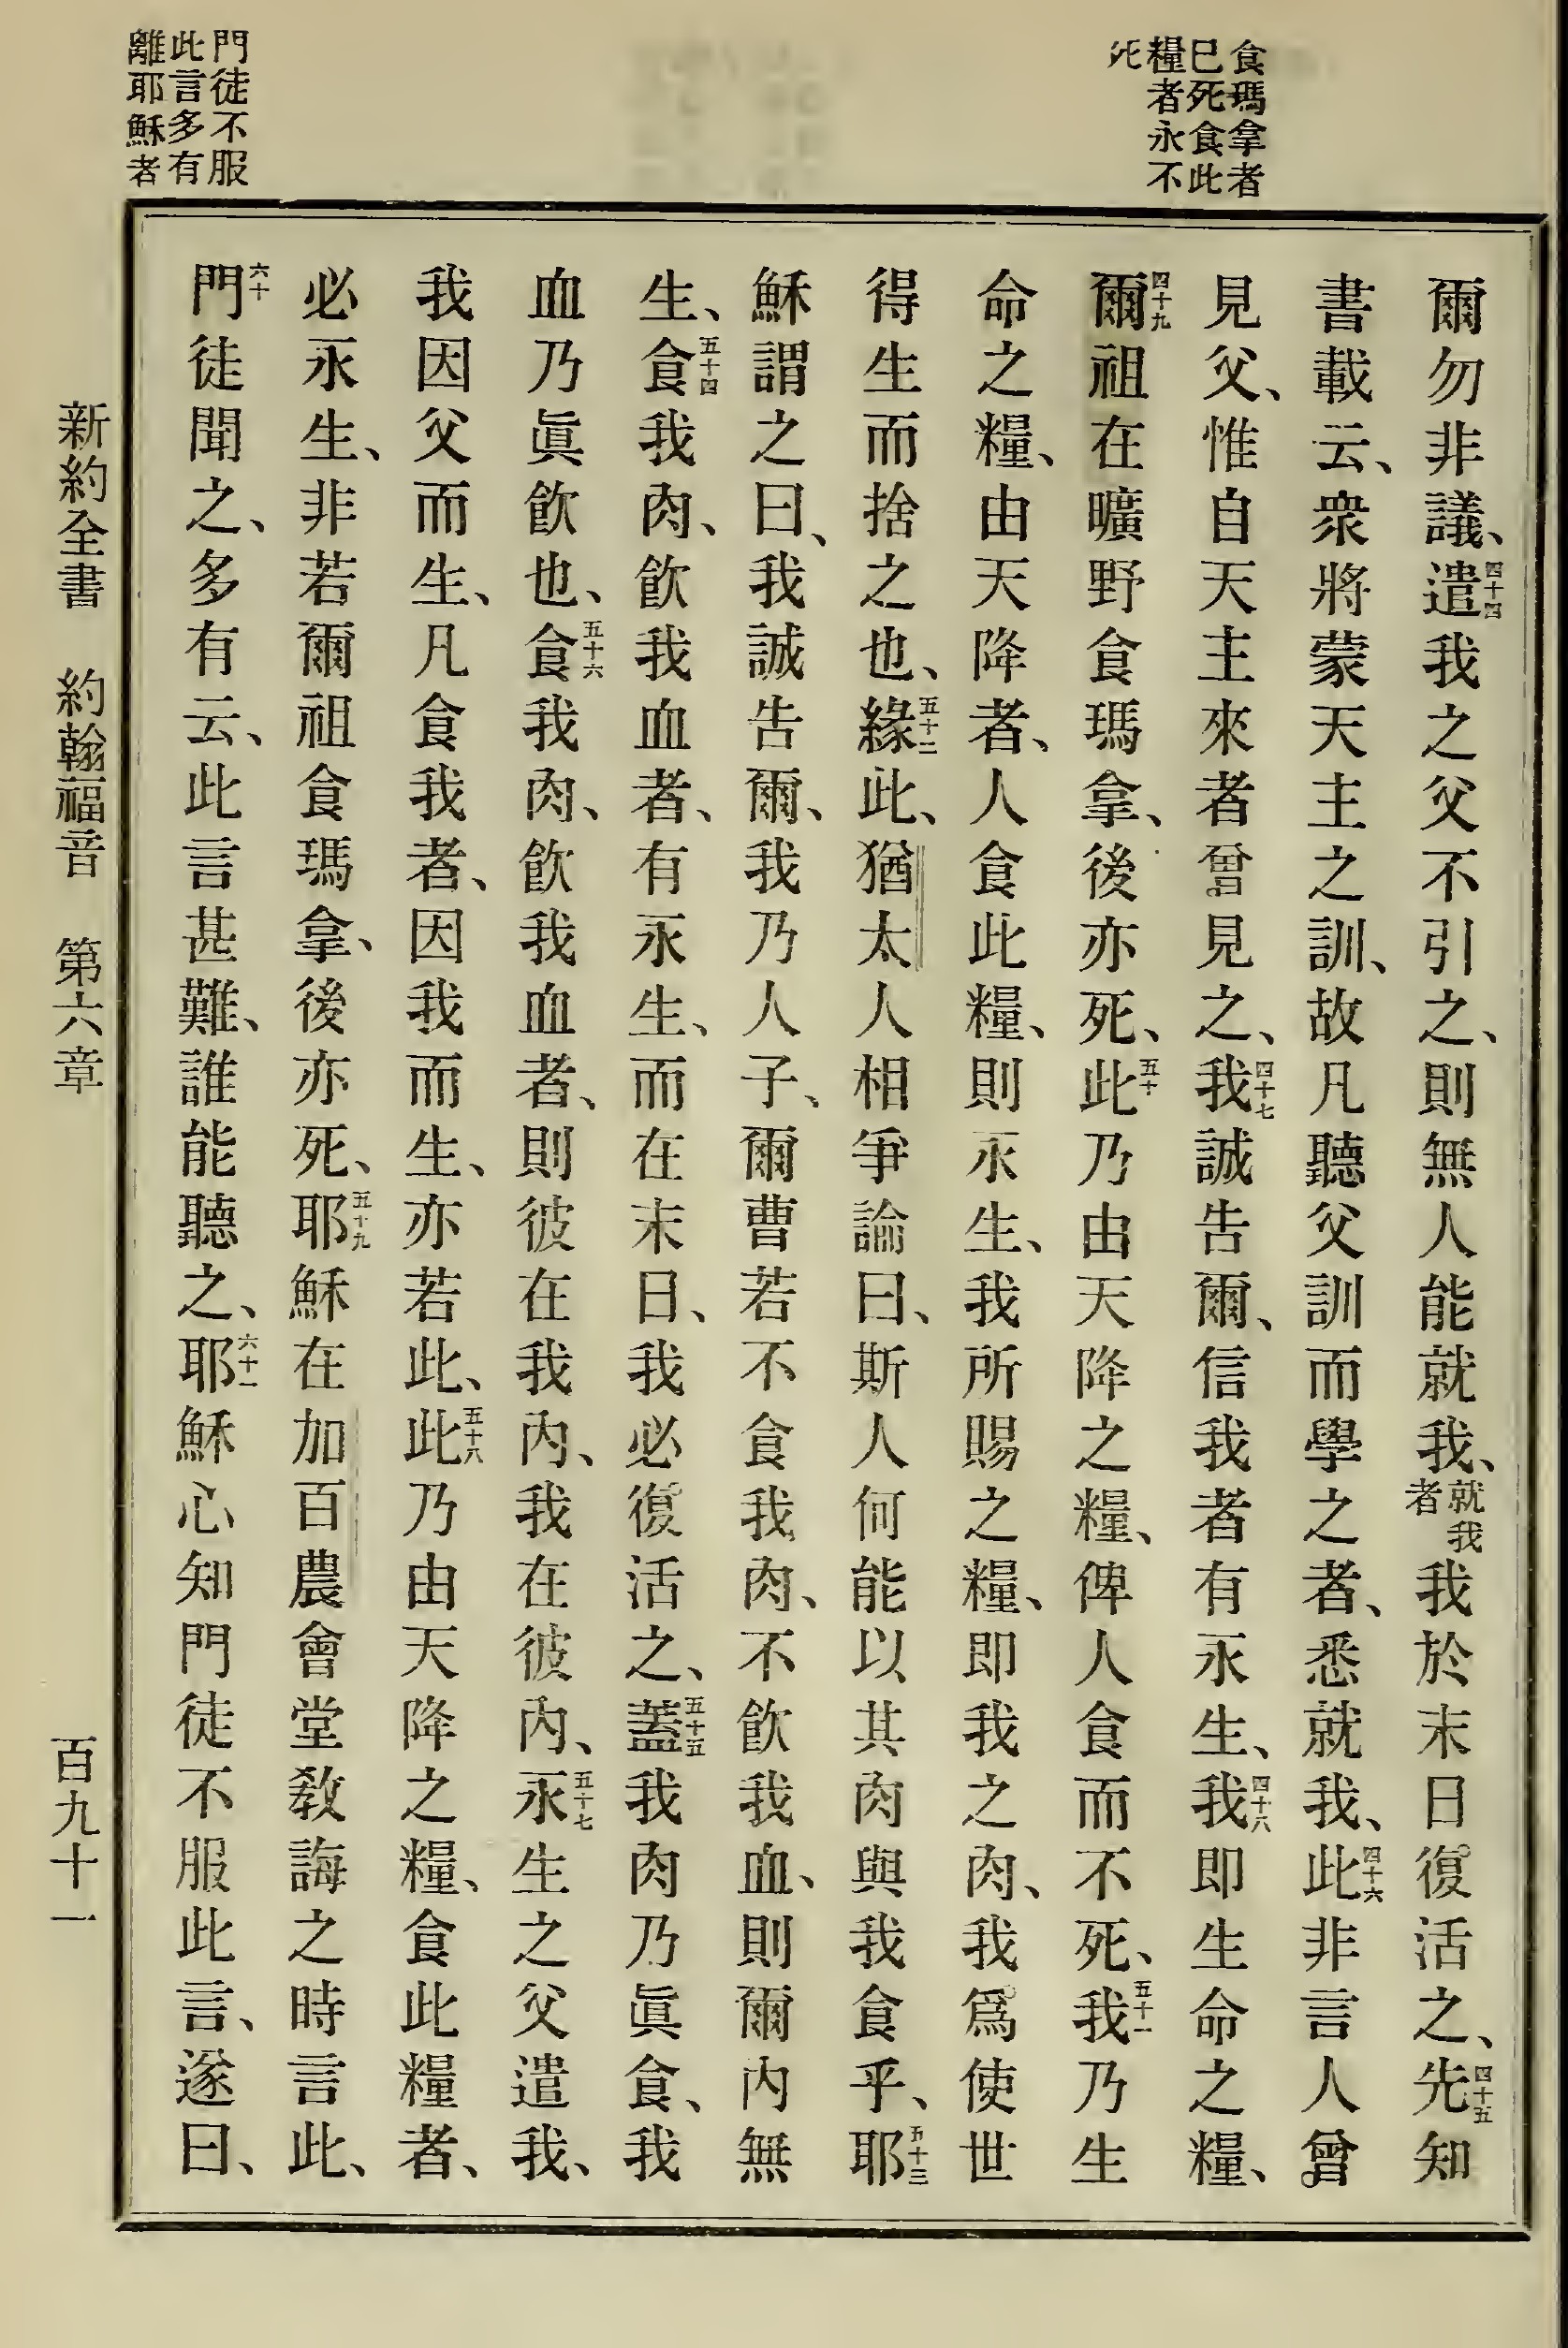 食瑪拿者
已死食此
糧者永不
死
門徒不服
此言多有
離耶穌者
爾勿非議、四十四遣我之父不引之、則無人能就我、就我者我於末日復活之、四十五先知
書載云、衆將蒙天主之訓、故凡聽父訓而學之者、悉就我、四十六此非言人曾
見父、惟自天主來者曾見之、四十七我誠告爾、信我者有永生、四十八我即生命之糧、
四十九爾祖在曠野食瑪拿、後亦死、五十此乃由天降之糧、俾人食而不死、五十一我乃生
命之糧、由天降者、人食此糧、則永生、我所賜之糧、即我之肉、我爲使世
得生而捨之也、五十二緣此、猶太人相爭論曰、斯人何能以其肉與我食乎、五十三耶
穌謂之曰、我誠告爾、我乃人子、爾曹若不食我肉、不飮我血、則爾內無
生、五十四食我肉、飮我血者、有永生、而在末日、我必復活之、五十五蓋我肉乃眞食、我
血乃眞飮也、五十六食我肉、飮我血者、則彼在我內、我在彼內、五十七永生之父遣我、
我因父而生、凡食我者、因我而生、亦若此、五十八此乃由天降之糧、食此糧者、
必永生、非若爾祖食瑪拿、後亦死、五十九耶穌在加百農會堂敎誨之時言此、
六十門徒聞之、多有云、此言甚難、誰能聽之、六十一耶穌心知門徒不服此言、遂曰、
新約全書 約翰福音 第六章 百九十一